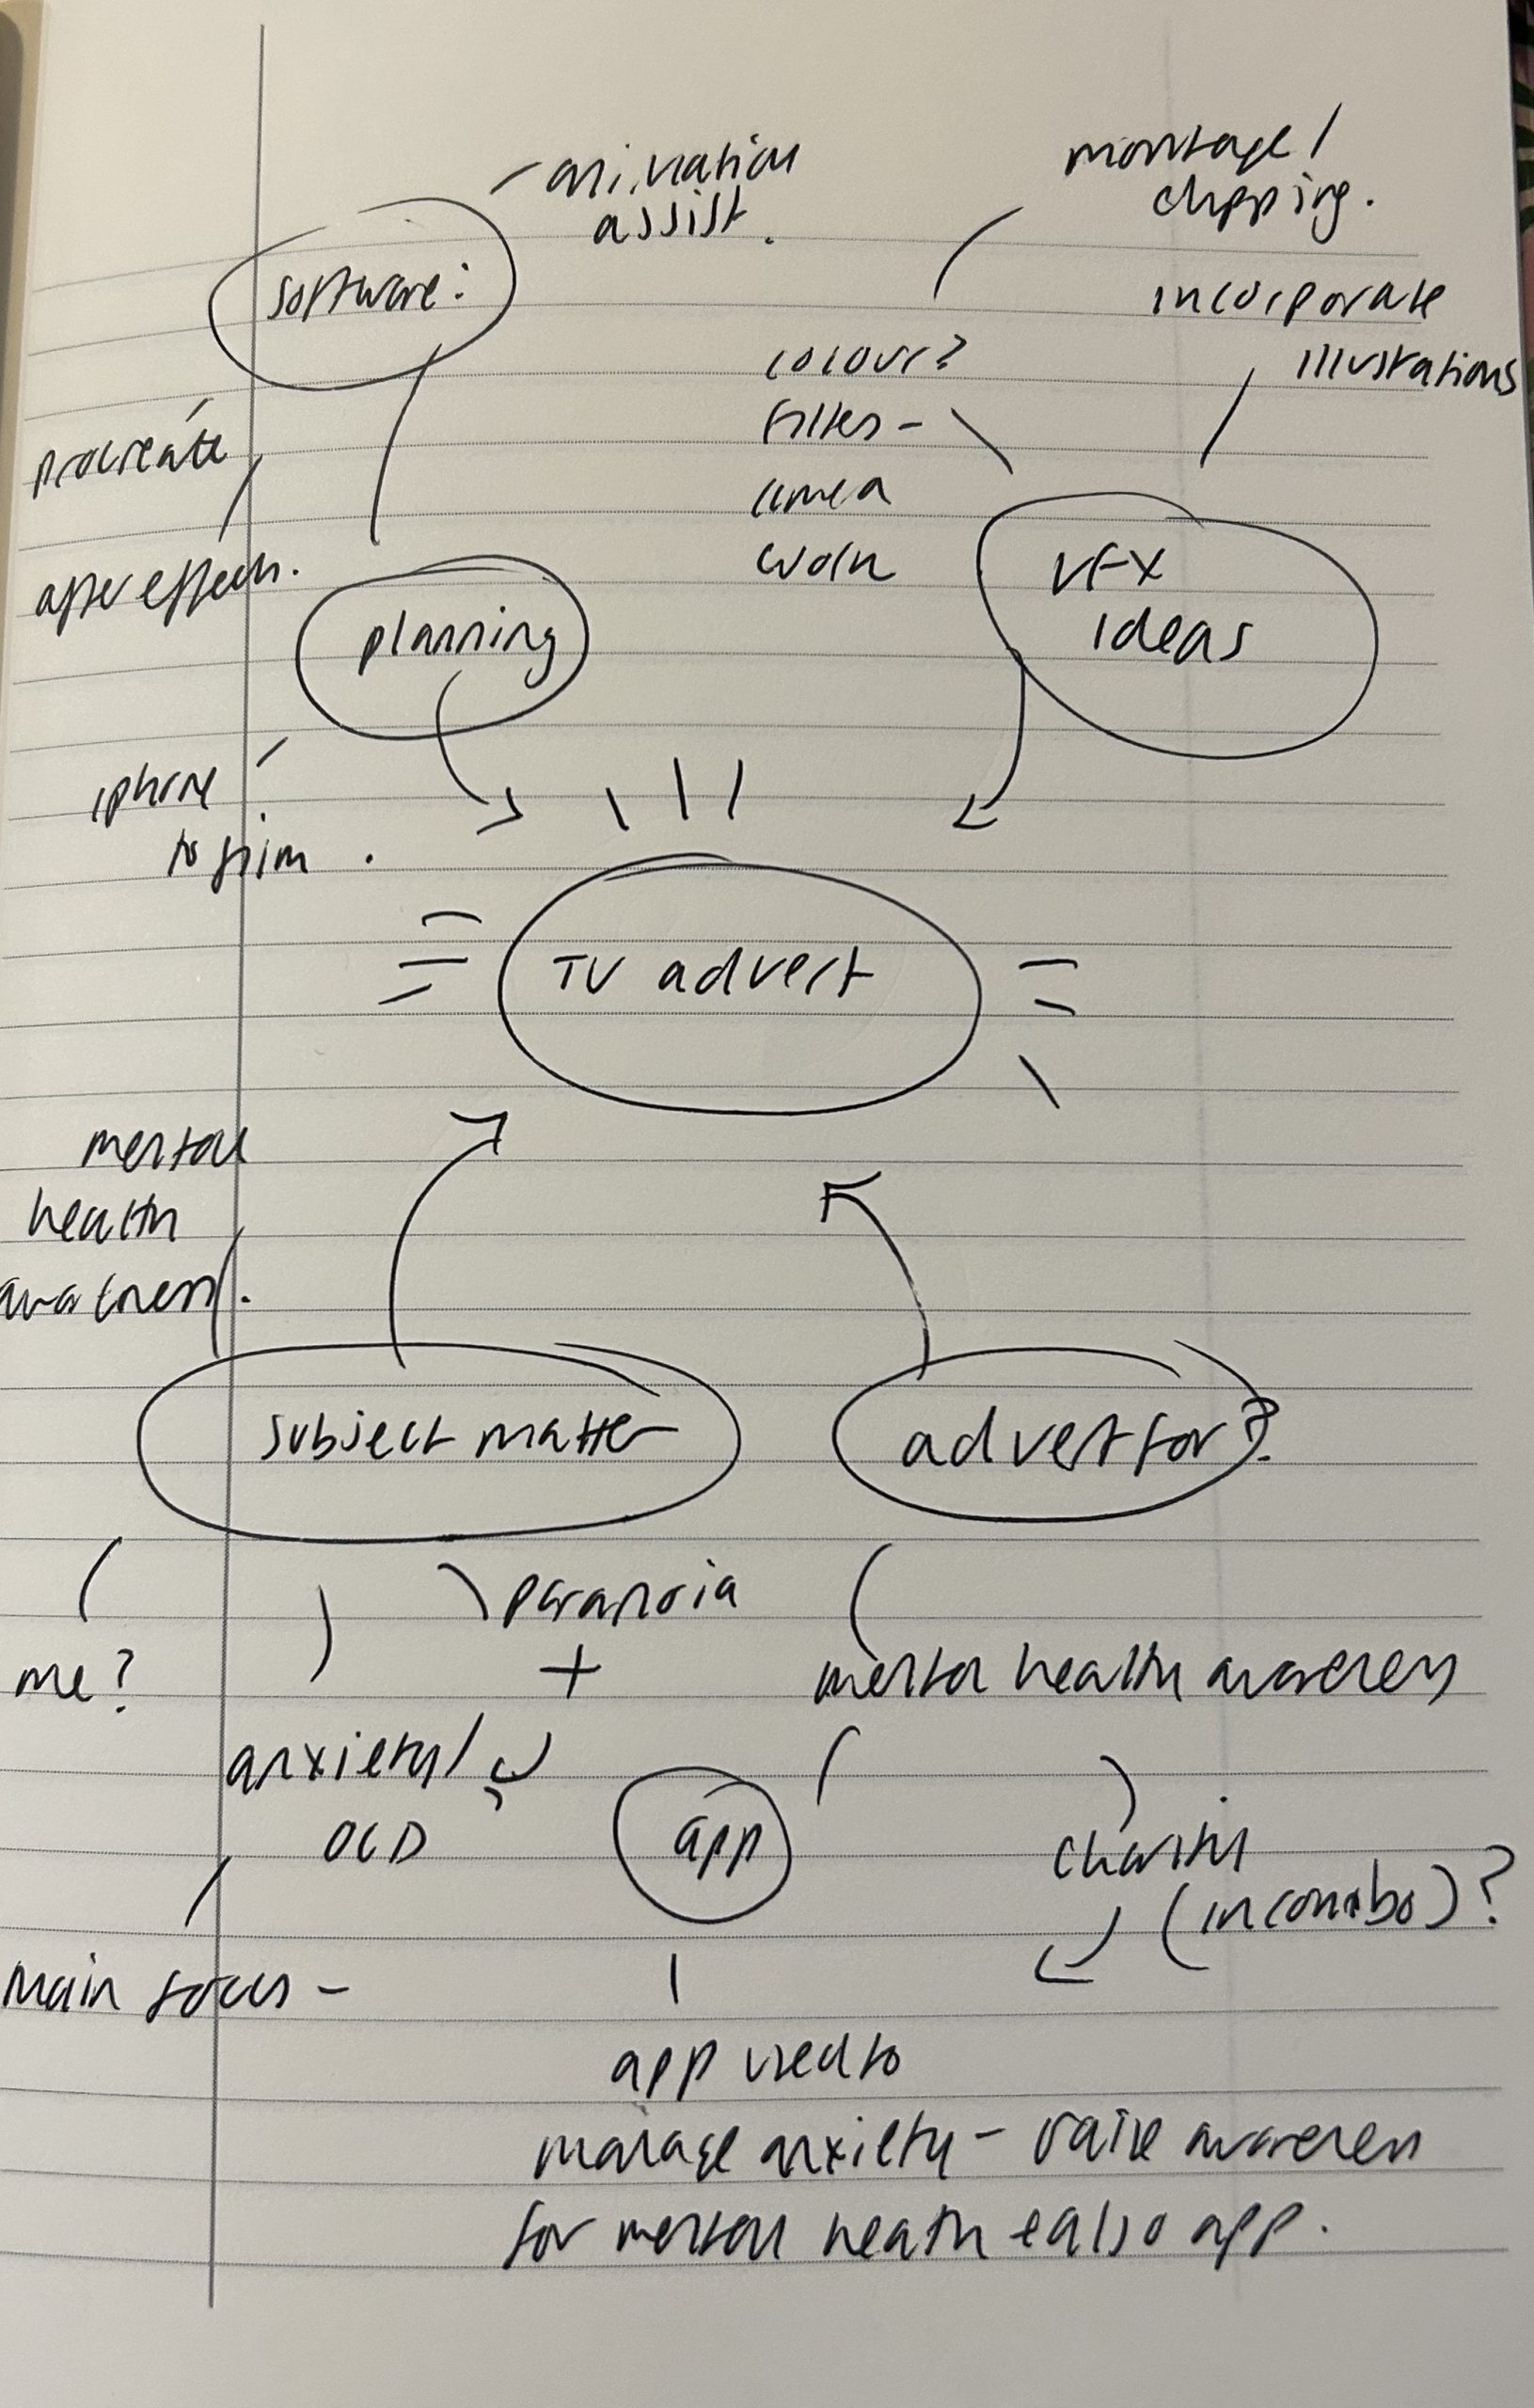 - animation
assist.
montage /
clipping.
software:
incorporate
illustrations
colour?
filter -
camera
work
procreate
after effects.
VFX
ideas
planning
iphone
to film.
TV advert
mental
health
awareness.
subject matter
advert for?
paranoia
+
me?
mental health awareness
anxiety /
OCD
app
charity
(in combo)?
main focus -
app used to
manage anxiety - raise awareness
for mental heath & also app.